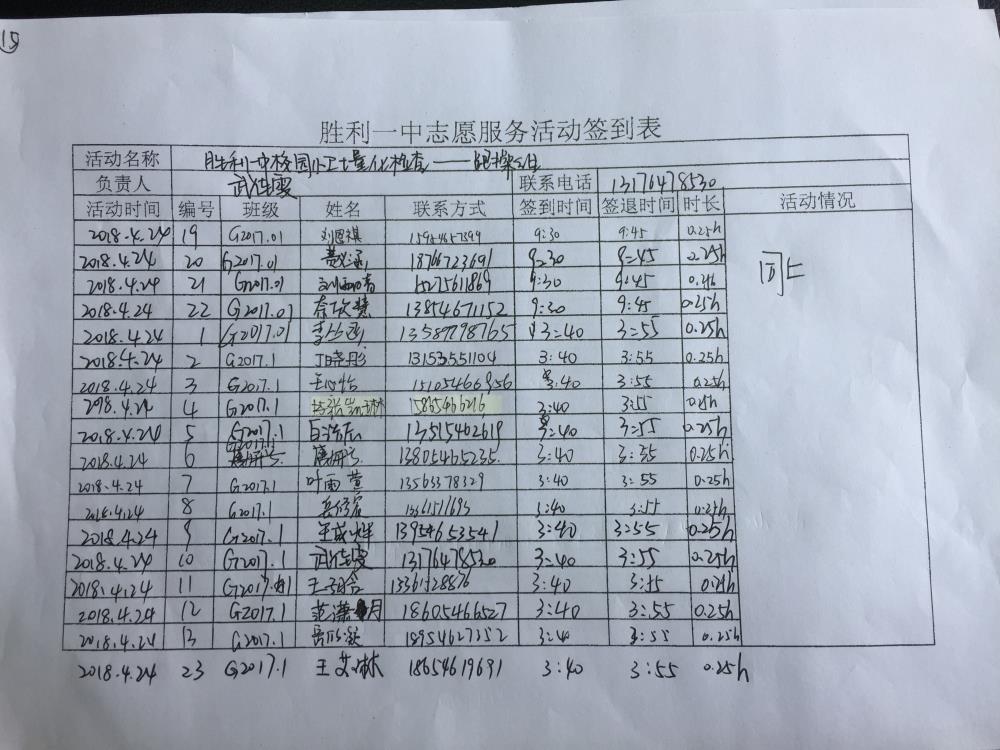 15
胜利一中志愿服务活动签到表
活动名称 胜利一中校园卫士量化检查——课操卫生
负责人 武佳雯 联系电话 13176478530
活动时间 编号 班级 姓名 联系方式 签到时间 签退时间 时长 活动情况
2018.4.24 19 G2017.01 15954657399 9:30 9:45 0.25h
2018.4.24 20 G2017.01 18766723691 9:30 9:45 0.25h 同上
2018.4.24 21 G2017.01 15275611869 9:30 9:45 0.25h
2018.4.24 22 G2017.01 13854671152 9:30 9:45 0.25h
2018.4.24 1 G2017.01 13589998765 3:40 3:55 0.25h
2018.4.24 2 G2017.1 丁晓彤 13153551104 3:40 3:55 0.25h
2018.4.24 3 G2017.1 王心怡 15105466956 3:40 3:55 0.25h
2018.4.24 4 G2017.1 5865466216 3:40 3:55 0.25h
2018.4.24 5 G2017.1 13515462619 3:40 3:55 0.25h
2018.4.24 6 G2017.1 13805465235 3:40 3:55 0.25h
2018.4.24 7 G2017.1 叶雨萱 13563378329 3:40 3:55 0.25h
2018.4.24 8 G2017.1 3:40 3:55 0.25h
2018.4.24 9 G2017.1 13954653541 3:40 3:55 0.25h
2018.4.24 10 G2017.1 武佳雯 13176478530 3:40 3:55 0.25h
2018.4.24 11 G2017.1 13361528876 3:40 3:55 0.25h
2018.4.24 12 G2017.1 范潇月 18605466527 3:40 3:55 0.25h
2018.4.24 13 G2017.1 18954627352 3:40 3:55 0.25h
2018.4.24 23 G2017.1 王艾琳 18654619691 3:40 3:55 0.25h